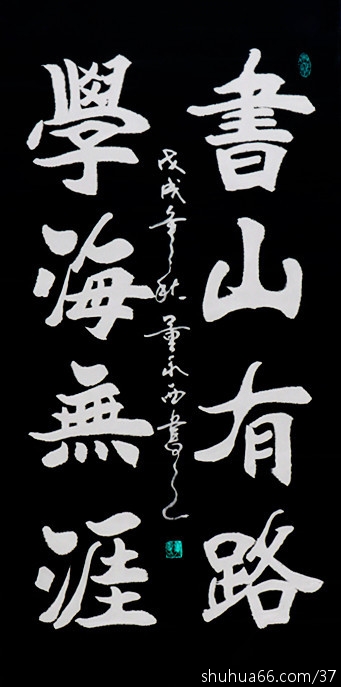 書山有路
學海無涯
戊戌年秋董永西書之
shuhua66.com/37